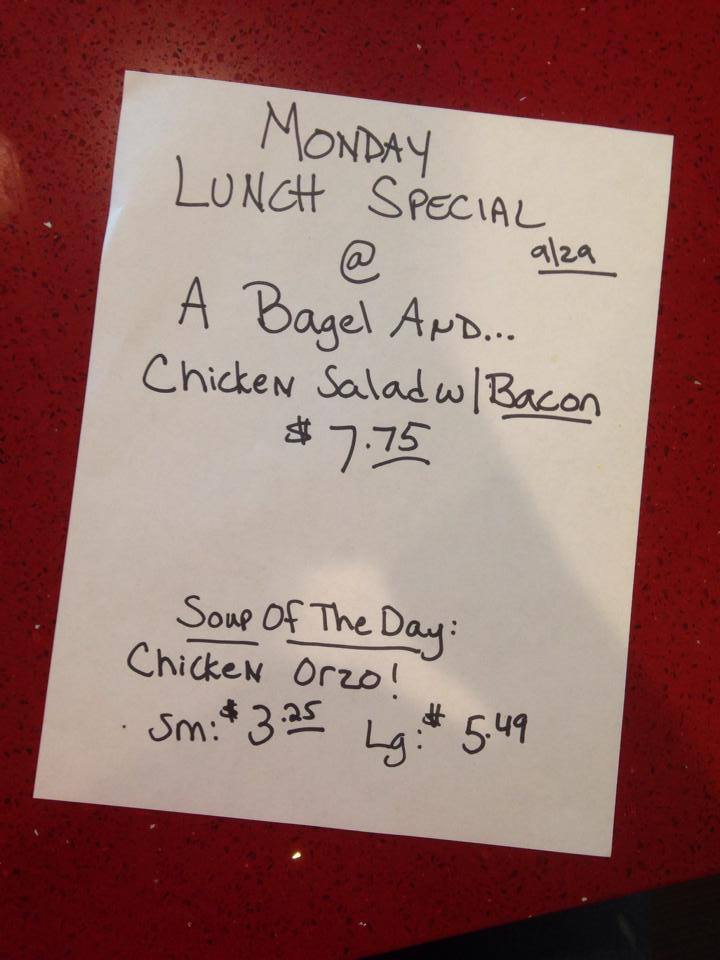 MONDAY
LUNCH SPECIAL
@ 9/29
A Bagel AND...
Chicken Salad w/Bacon
$7.75
Soup Of The Day:
Chicken Orzo!
Sm: $3.25 Lg: $5.49